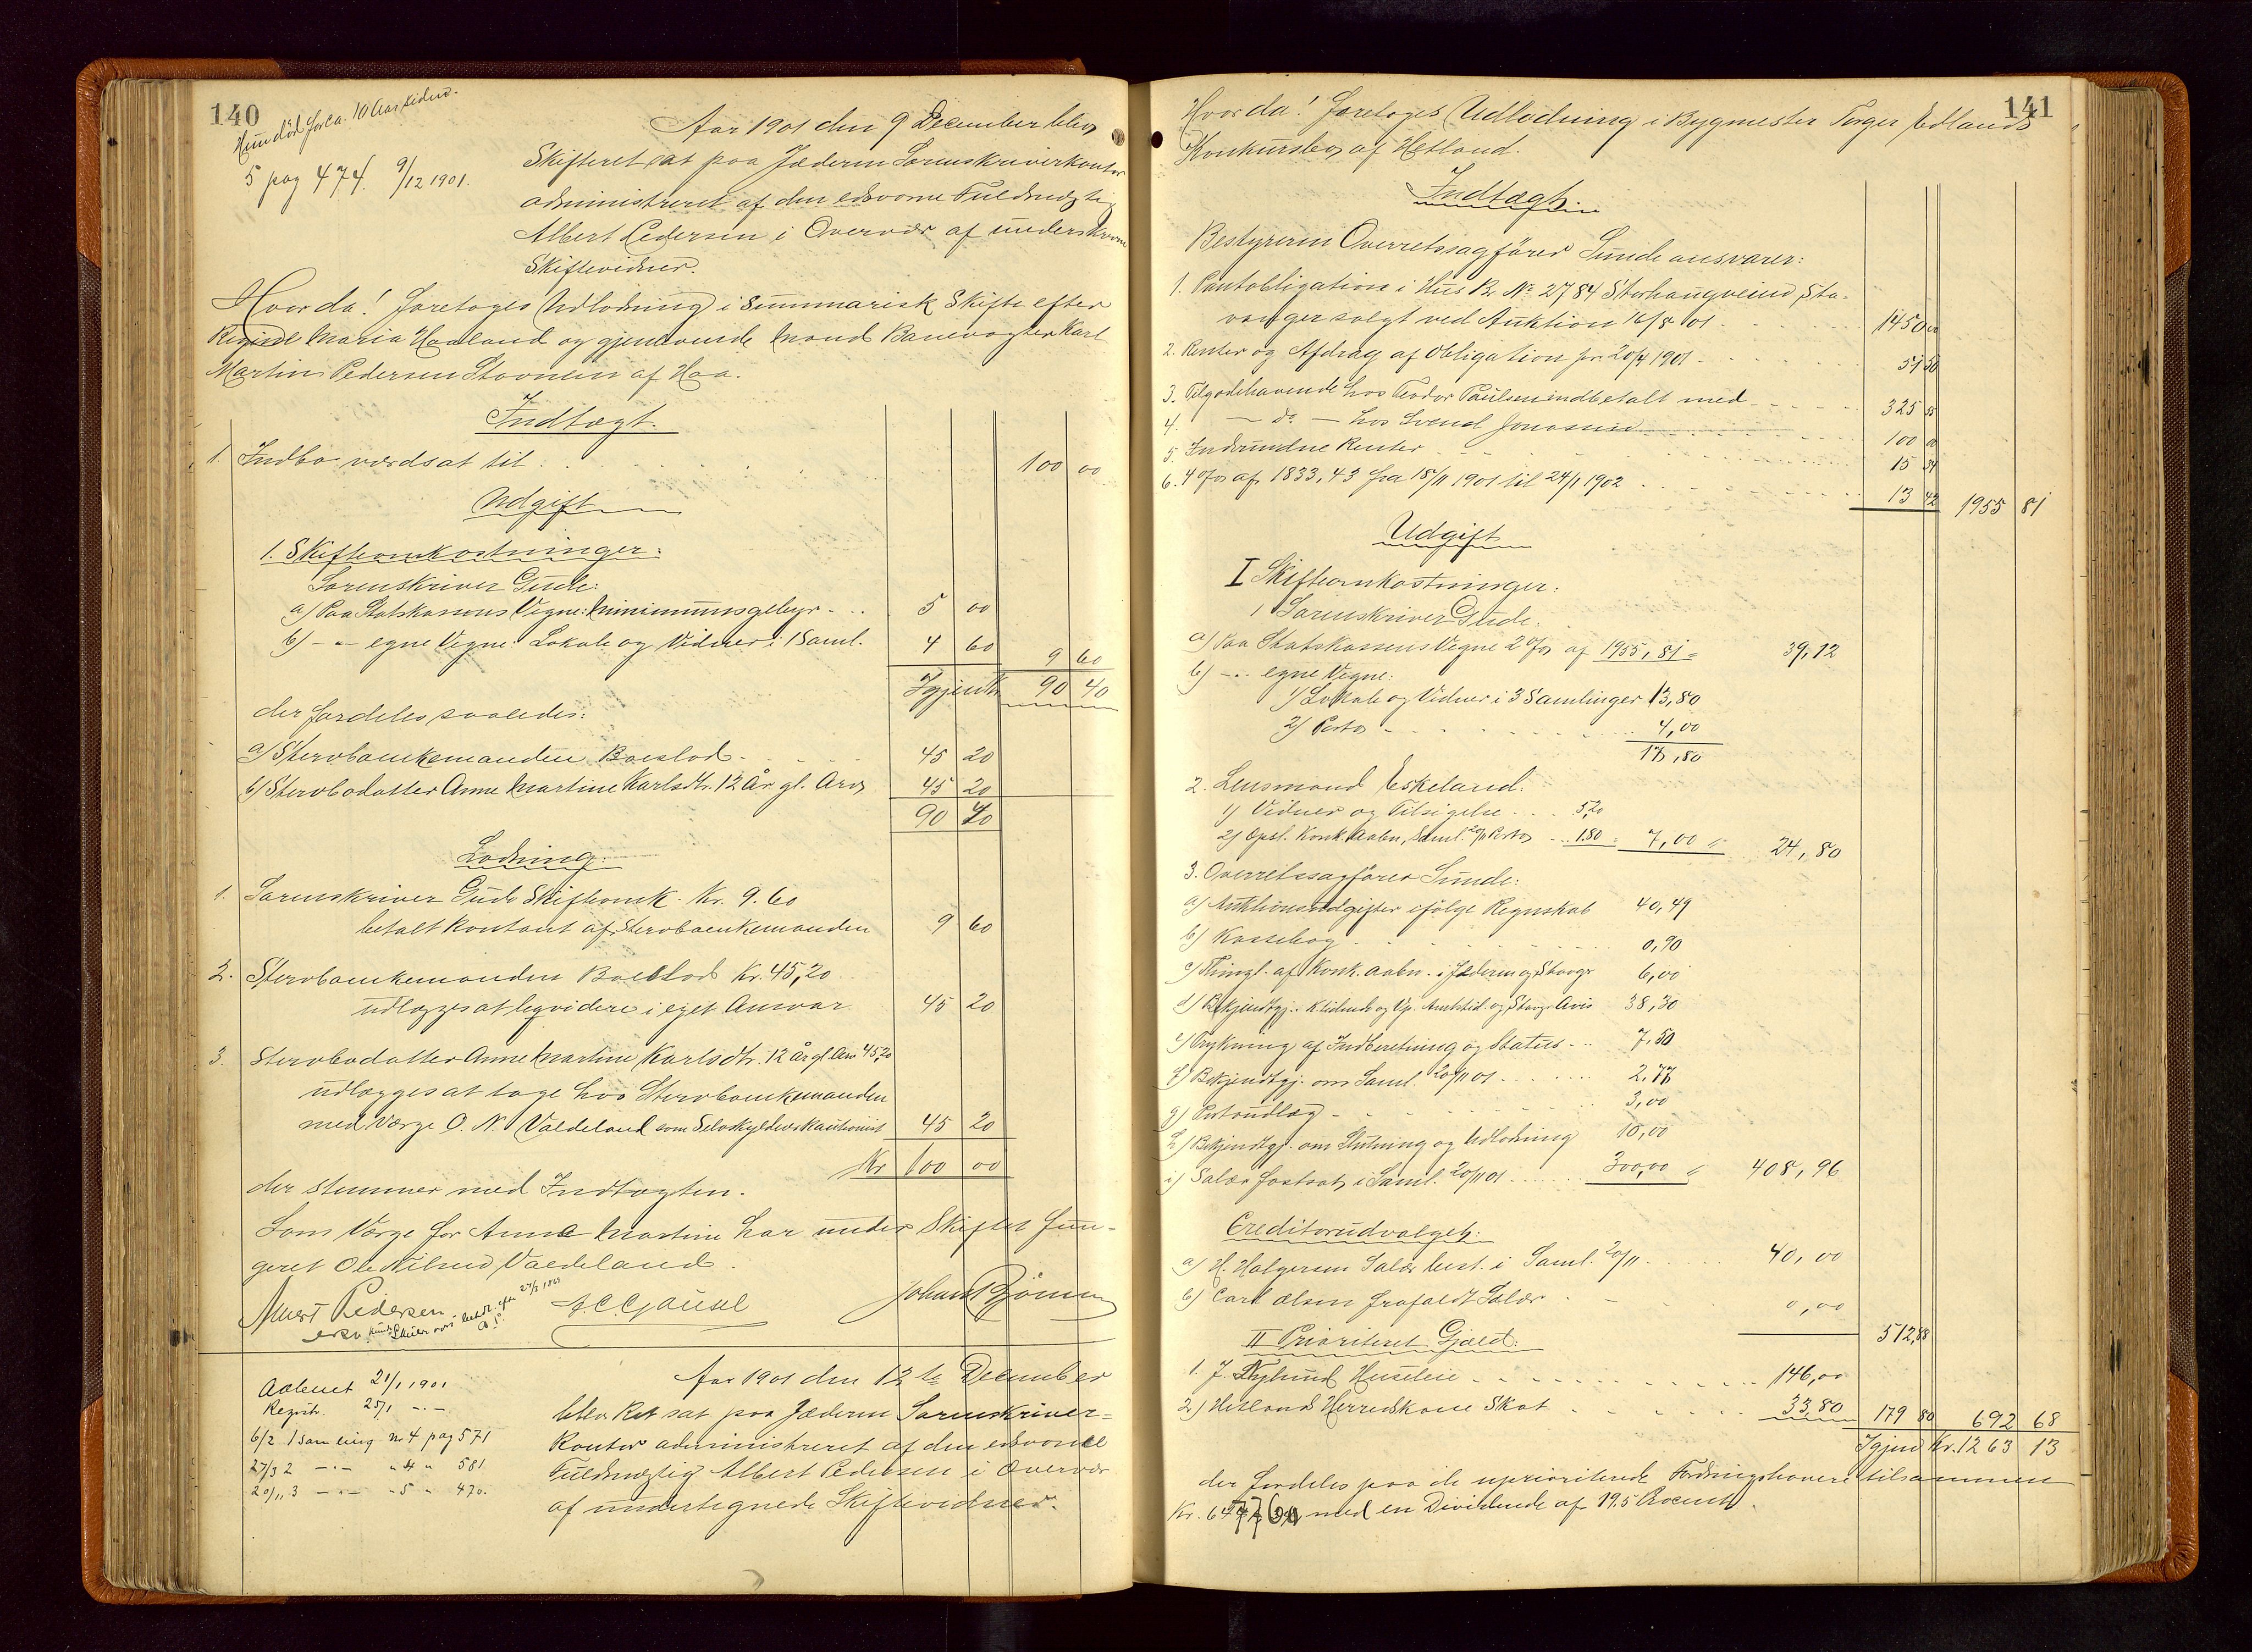 140
Hun død for ca. 10 Aar siden.
5 pag 474. 9/12 1901.
Aar 1901 den 9 December blev
Skifteret sat paa Jæderen Sorenskriverkontor
administreret af den edsvorne Fuldmægtig
Albert Pedersen i Overvær af underskrevne
Skiftevidner.
Hvorda! foretoges Udlodning i summarisk Skifte efter
Maria Haaland og gjenlevende Mand Banevogter Karl
Martin Pedersen Stovneim af Haa.
Indtægt.
1. Indbo værdsat til: 100 00
Udgift
1. Skifteomkostninger:
Sorenskriver Gude:
a) Paa Statskassens Vegne: Minimumsgebyr - .. 5 00
b) - " - egne Vegne: Lokale og Vidner i 1 Saml. 4 60 9 60
Igjen Kr. 90 40
der fordeles saaledes:
a) Stervboenkemanden Boeslod. 45 20
b) Stervbodatter Anne Martine Karlsdtr. 12 År gl. Arv 45 20
90 40
Lodning:
1. Sorenskriver Gude Skifteomk. Kr. 9.60
betalt kontant af Stervboenkemanden 9 60
2. Stervboenkemanden Boeslod Kr. 45,20
udlægges at liqvidere i eget Ansvar 45 20
3. Stervbodatter Anne Martine Karlsdtr. 12 År gl. Arv 45,20
udlægges at tage hos Stervboenkemanden
med Værge O. N. Valdeland som Selvskyldnerkautionist 45 20
Kr 100 00
der stemmer med Indtægten.
Som Værge for Anne Martine har under Skiftet fun-
geret Ole Nilsen Valdeland.
Albert Pedersen J. C. Gausel Johan Bjønnes
Aabnet 21/1 1901
Registr. 25/1 - " -
6/2 1 Samling No 4 pag 571
27/3 2 - " - " 4 " 581
20/11 3 - " - " 5 " 470.
Aar 1901 den 12te December
blev Ret sat paa Jæderen Sorenskriver-
kontor administreret af den edsvorne
Fuldmægtig Albert Pedersen i Overvær
af undertegnede Skiftevidner.
141
Hvorda! foretoges Udlodning i Bygmester Torger Edlands
Konkursbo af Hetland.
Indtægt.
Bestyreren Overretssagfører Sunde ansvarer:
1. Pantobligation i Hus B. No 2784 Storhaugveien, Sta-
vanger solgt ved Auktion 16/8 01 1450 00
2. Renter og Afdrag af Obligation pr. 20/4 1901 - 51 50
3. Tilgodehavende hos Teodor Paulsen indbetalt med - 325 55
4. - do - hos Svend Jonassen 100 00
5. Indvundne Renter 15 34
6. 4 o/o af 1833,43 fra 18/11 1901 til 24/1 1902 13 42 1955 81
Udgift
I Skifteomkostninger:
1 Sorenskriver Gude:
a) Paa Statskassens Vegne 2 o/o af 1955,81 = 39,12
b) - " - egne Vegne:
1) Lokale og Vidner i 3 Samlinger 13,80
2) Porto - 4,00
17,80
2. Lensmand Eskeland:
1) Vidner og Tilsigelse 5,20
2) Opsl. Konk. Aabn., Saml. 20/11 Porto - 1.80 = 7,00 = 24,80
3. Overretssagfører Sunde:
a) Auktionsudgifter ifølge Regnskab 40,49
b) Kassebog 0,90
c) Thingl. af Konk. aabn. i Jæderen og Stavgr 6,00
d) Bekjendtgj. i K.tidende og Vp. Amtstid. og Stavgr Avis 38,30
e) Trykning af Indberetning og Status - .. 7,50
f) Bekjendtgj. om Saml. 20/11 01 2,77
g) Portoudlæg - 3,00
h) Bekjendtgj. om Slutning og Udlodning 10,00
i) Salær fastsat i Saml. 20/11 01 300,00 = 408,96
Creditorudvalget:
a) H. Halgersen Salær best. i Saml. 20/11 40,00
b) Carl Olsen frafaldt Salær 0,00
512,88
II Prioriteret Gjæld:
1. J. Nylund Husleie 146,00
2) Hetland Herredskasse Skat 33,80 179 80 692 68
Igjen Kr. 1263 13
der fordeles paa de uprioriterede Fordringshavere tilsammen
med en Dividende af 19.5 Procent.